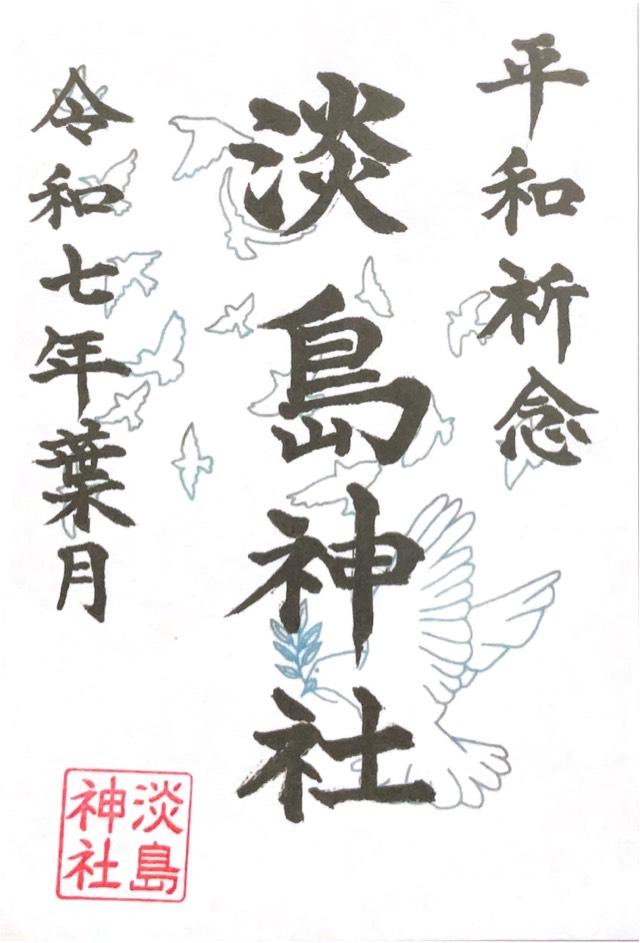 平和祈念
淡島神社
令和七年葉月
淡島
神社